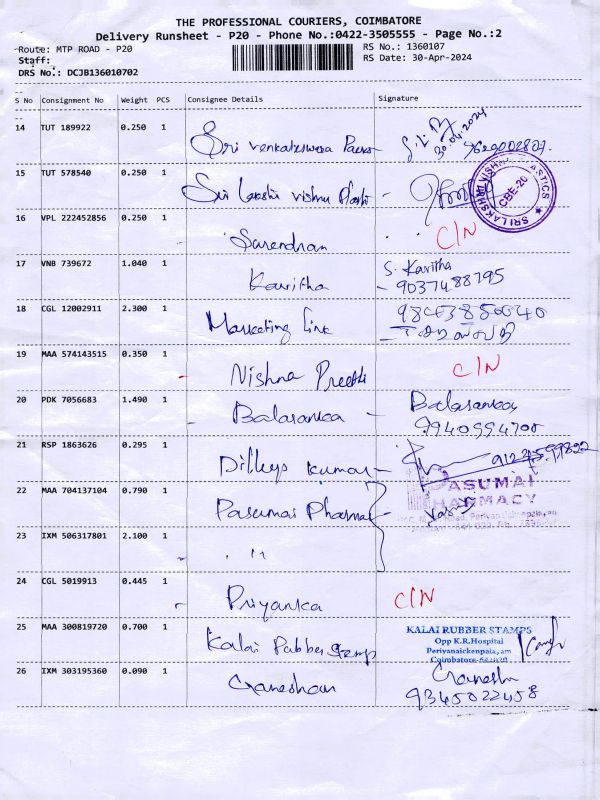 THE PROFESSIONAL COURIERS, COIMBATORE
Delivery Runsheet - P20 - Phone No.:0422-3505555 - Page No.:2
Route: MTP ROAD - P20
RS No.: 1360107
Staff:
RS Date: 30-Apr-2024
DRS No.: DCJB136010702
S No Consignment No Weight PCS Consignee Details Signature
14 TUT 189922 0.250 1 Sri Venkateshwara 30.04.2024
15 TUT 578540 0.250 1 Sri Lakshi Vishnu Plasti
SRI LAKSHMI VISHNU PLASTICS CBE-20
16 VPL 222452856 0.250 1 Surendran C/N
17 VNB 739672 1.040 1 Kavitha S. Kavitha
9037488795
18 CGL 12002911 2.300 1 Marketing Link
19 MAA 574143515 0.350 1 Nishna Preethi C/N
20 PDK 7056683 1.490 1 Balasanka Balasanka
9940994700
21 RSP 1863626 0.295 1 Dilleep Kumar
22 MAA 704137104 0.790 1 Pasumai Pharma
PASUMAI
PHARMACY
23 IXM 506317801 2.100 1 "
24 CGL 5019913 0.445 1 Priyanka C/N
25 MAA 300819720 0.700 1 Kalai Rubber Stamp
KALAI RUBBER STAMPS
Opp K.R.Hospital
Periyanaickenpalayam
Coimbatore-641020
26 IXM 303195360 0.090 1 Ganeshan Ganesh
9345022458